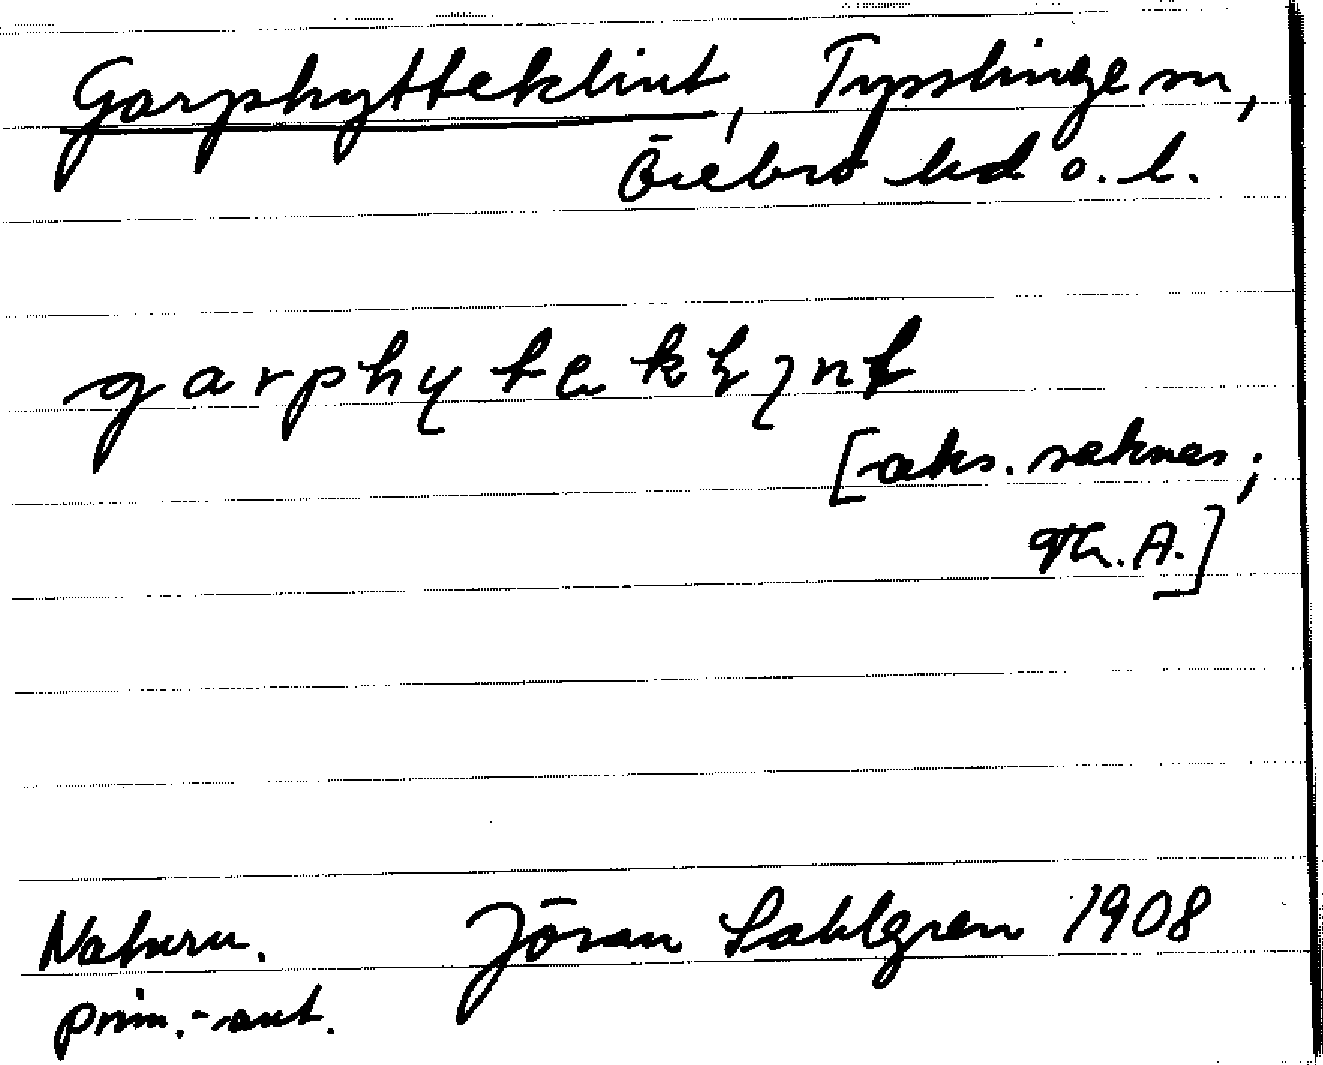 Garphytteklint, Tysslinge sn,
Örebro hd o. l.
garphytekl̥ınt
[aks. saknas;
Th. A.]
Naturn. Jöran Sahlgren 1908
prim.-ant.